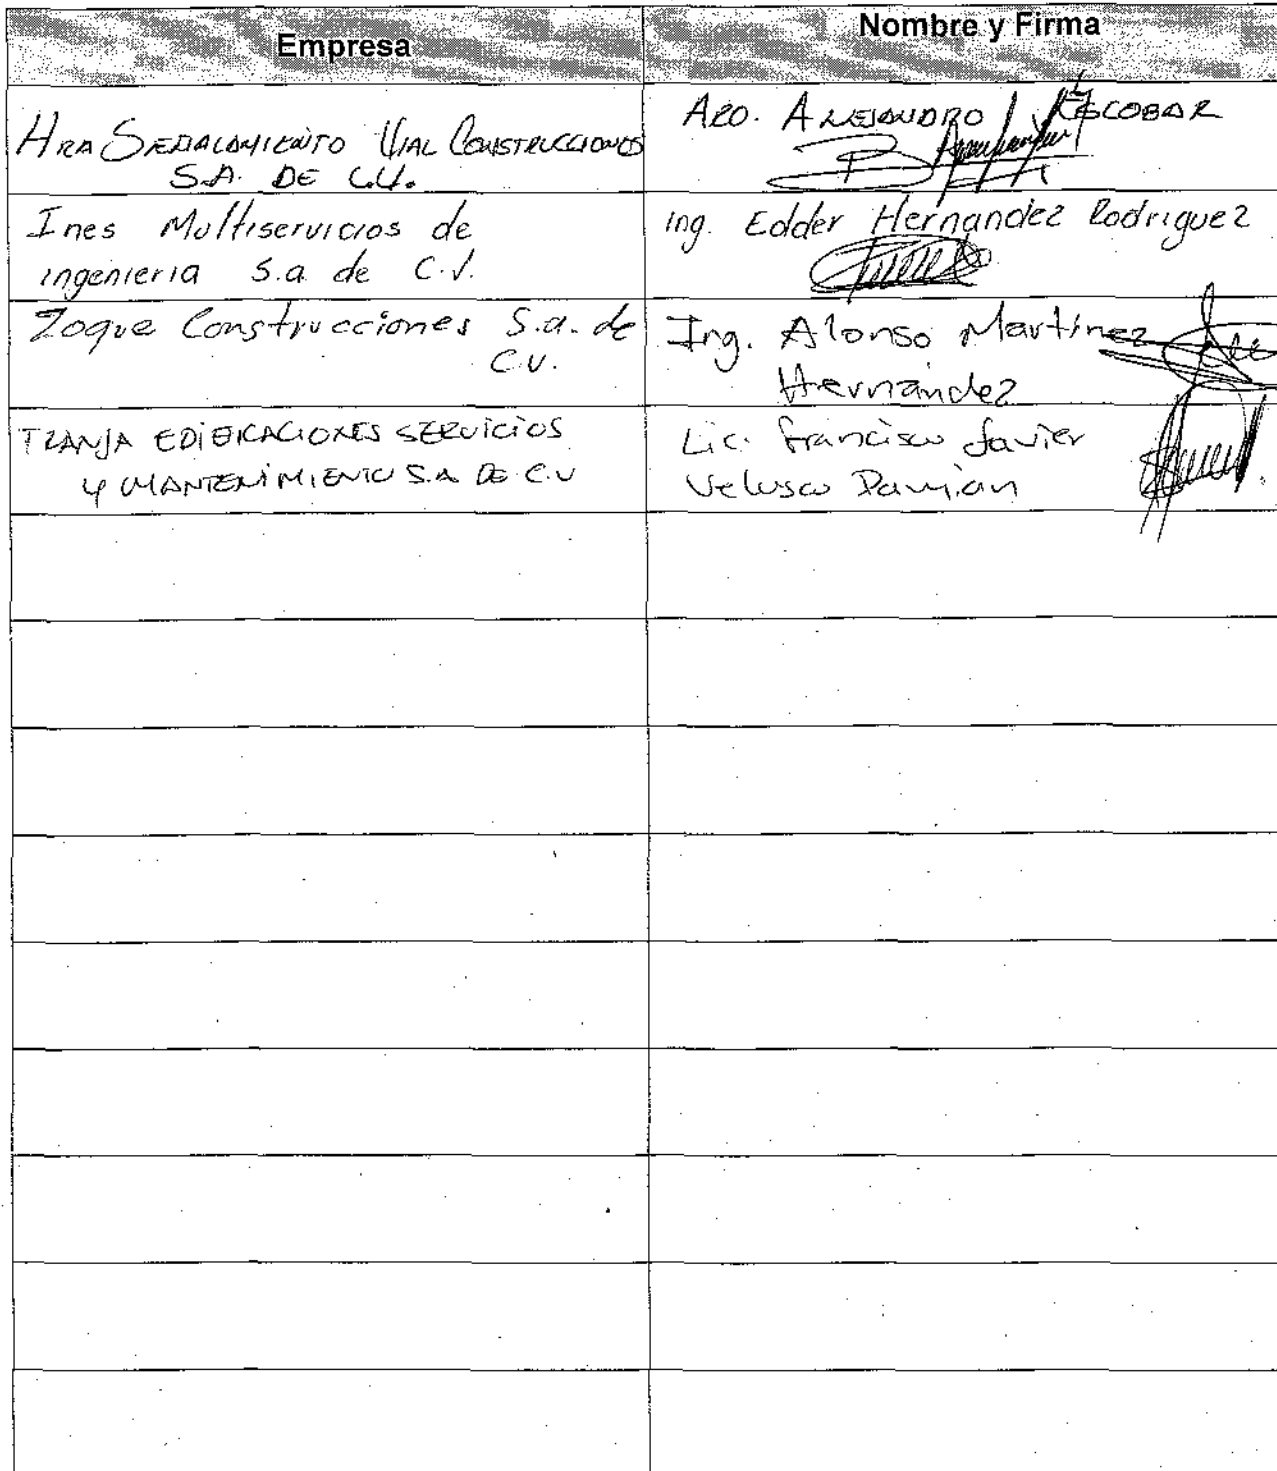 Empresa
Nombre y Firma
HRA SEÑALAMIENTO VIAL CONSTRUCCIONES
S.A. DE C.V.
ARQ. ALEJANDRO ESCOBAR
Ines Multiservicios de
ingenieria S.a. de C.V.
ing. Edder Hernandez Rodriguez
Zoque Construcciones S.a. de
C.V.
Ing. Alonso Martínez
Hernández
EDIFICACIONES SERVICIOS
Y MANTENIMIENTO S.A DE C.V
Lic. Francisco Javier
Velasco Damián